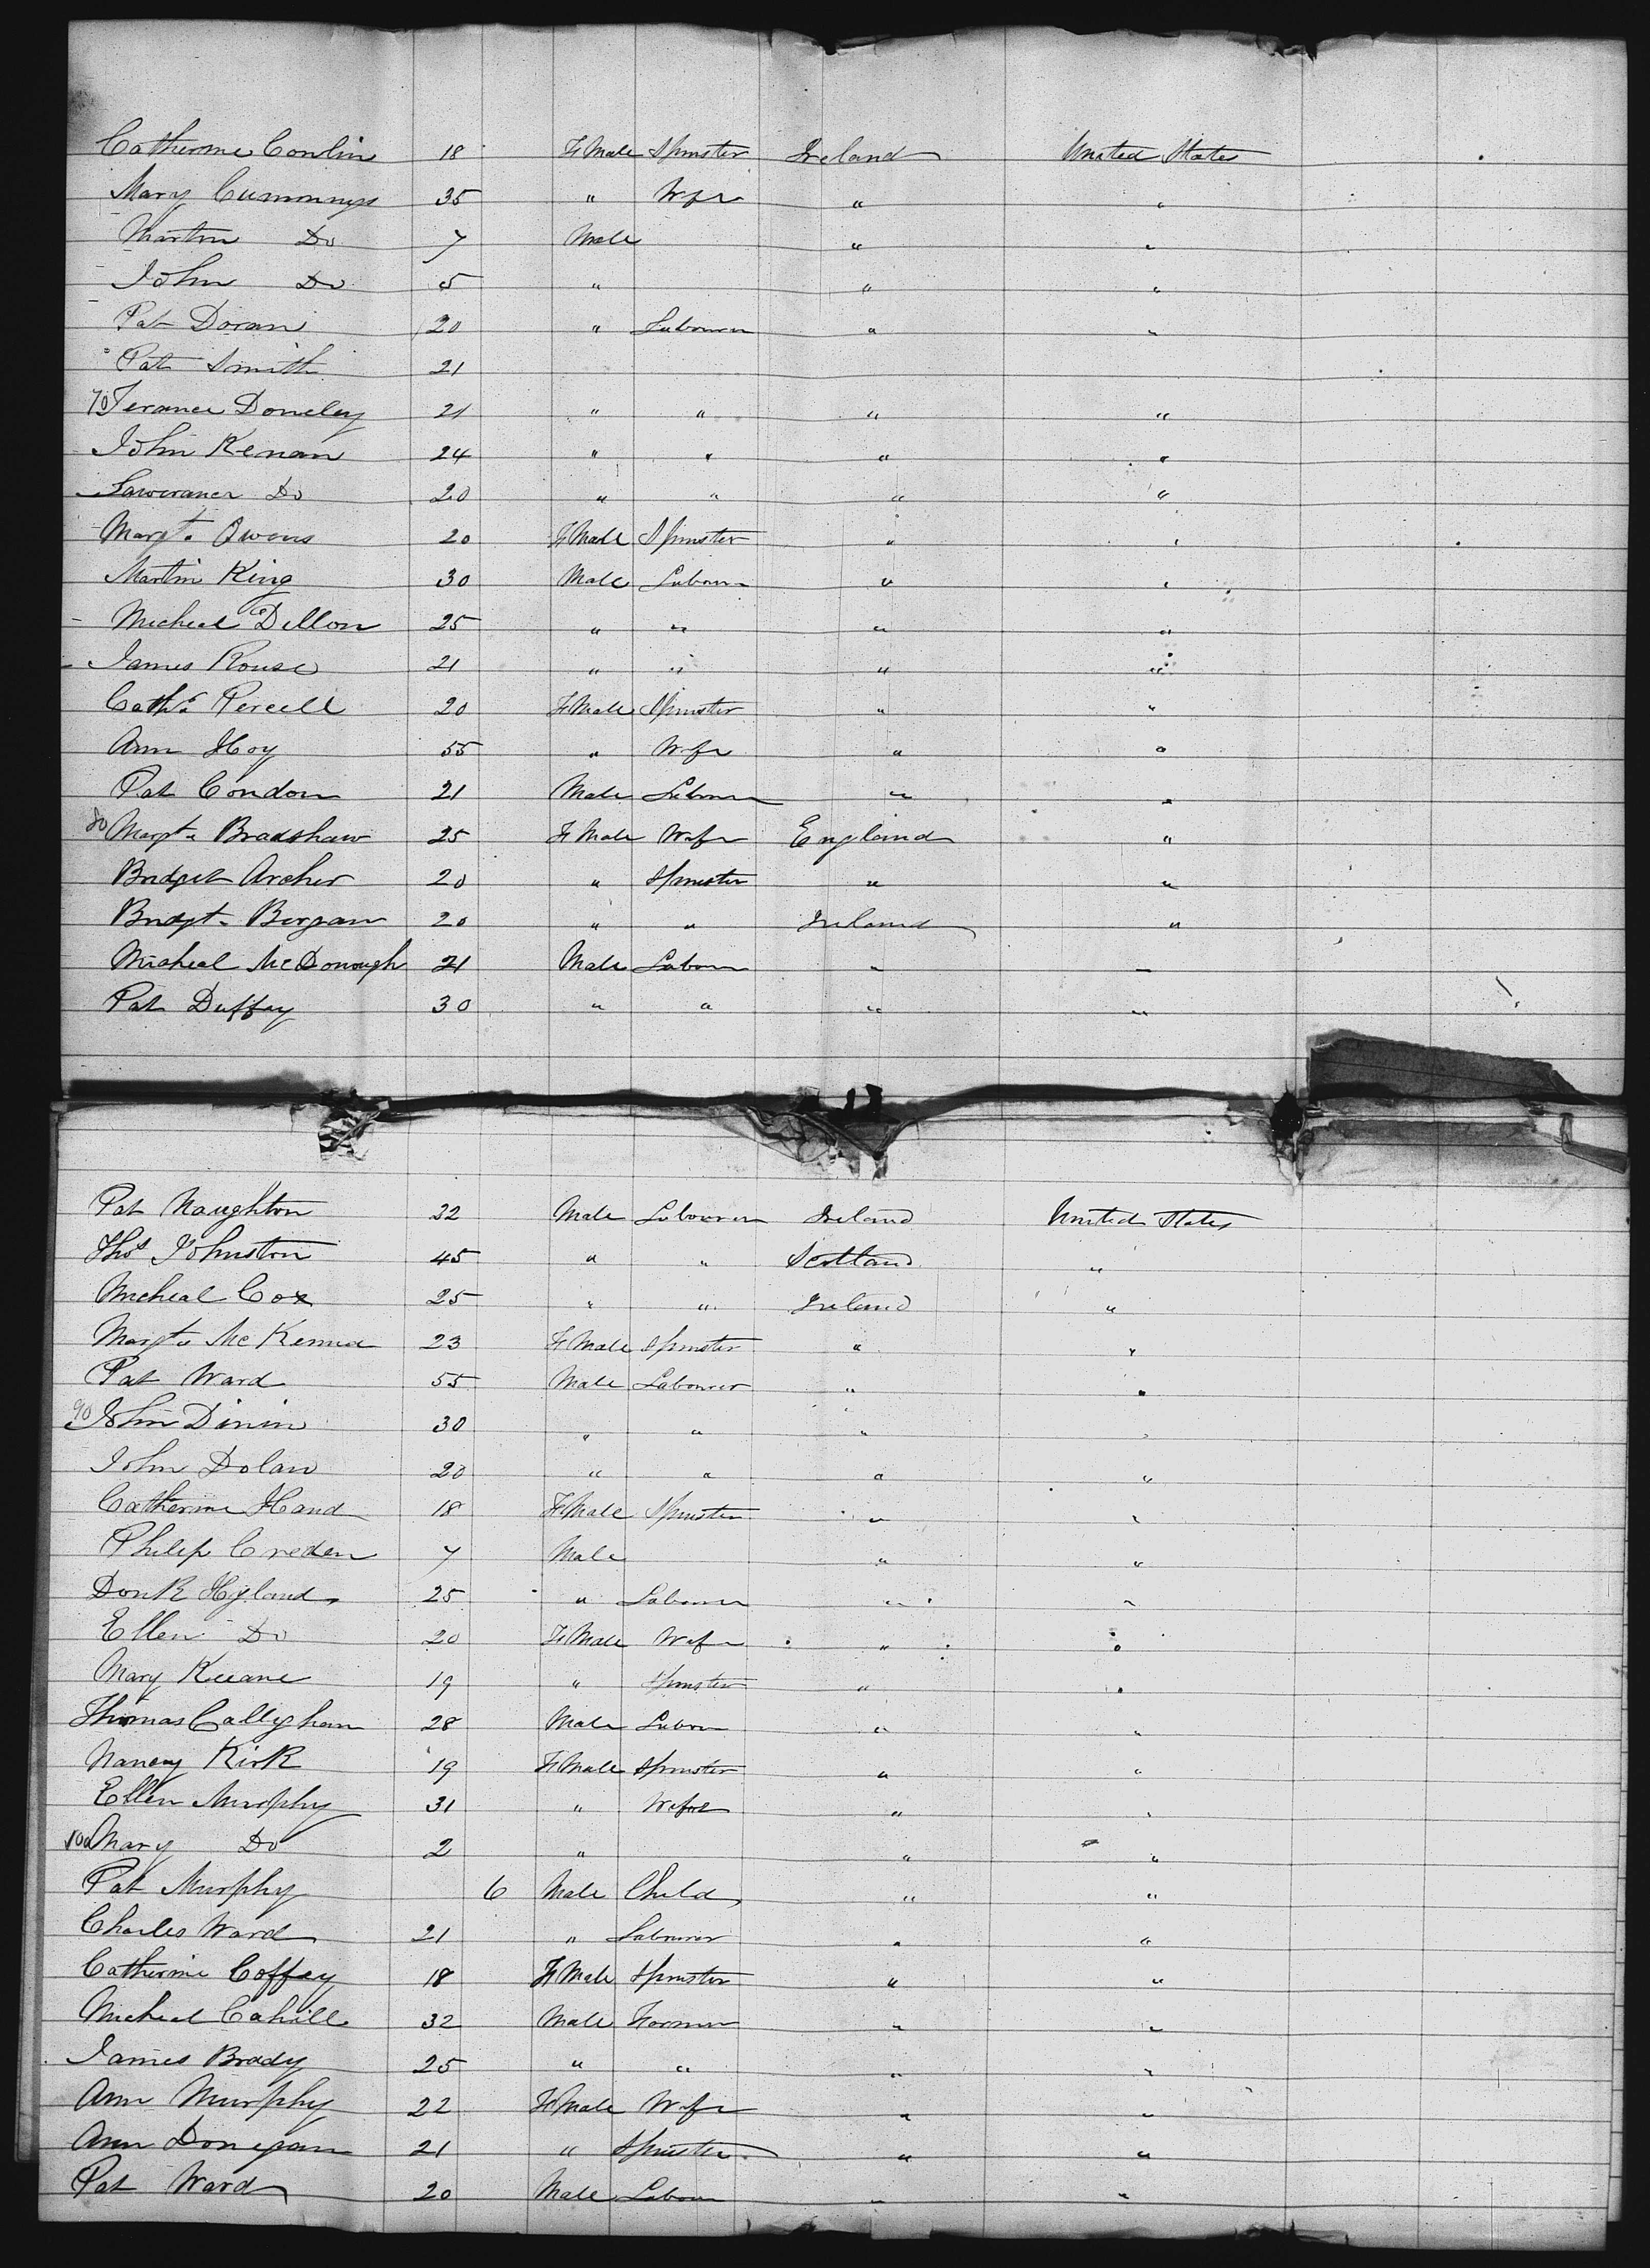 Catherine Conlin 18 F Male Spinster Ireland United States
Mary Cummings 35 " Wife " "
Martin Do 7 Male " "
John Do 5 " " "
Pat Doran 20 " Labourer " "
Pat Smith 21
70 Terance Doneley 21 " " " "
John Kenan 24 " " " "
Lawrance Do 20 " " " "
Margt. Owens 20 F Male Spinster " "
Martin King 30 Male Labour " "
Micheal Dillon 25 " " " "
James Rouse 21 " " " "
Cathn. Percell 20 F Male Spinster " "
Ann Hoy 55 " Wife " "
Pat Condon 21 Male Labourer " "
80 Margt. Bradshaw 25 F Male Wife England "
Bridget Archer 20 " Spinster " "
Bridgt. Bergan 20 " " Ireland "
Micheal McDonough 21 Male Labour " "
Pat Duffey 30 " " " "
Pat Naughton 22 Male Labourer Ireland United States
Thos Johnston 45 " " Scotland "
Micheal Cox 25 " " Ireland "
Margt. McKenna 23 F Male Spinster " "
Pat Ward 55 Male Labourer " "
90 John Dinin 30 " " " "
John Dolan 20 " " " "
Catherine Hand 18 F Male Spinster " "
Philip Creden 7 Male " "
Hyland 25 " Labourer " "
Ellen Do 20 F Male Wife " "
Mary Keeane 19 " Spinster " "
Thomas Callighan 28 Male Labour " "
Nancy Kirk 19 F Male Spinster " "
Ellen Murphy 31 " Wife " "
100 Mary Do 2 " " "
Pat Murphy 6 Male Child " "
Charles Ward 21 " Labourer " "
Catherine Coffey 18 F Male Spinster " "
Micheal Cahill 32 Male Farmer " "
James Brady 25 " " " "
Ann Murphy 22 F Male Wife " "
Ann Donegan 21 " Spinster " "
Pat Ward 20 Male Labour " "